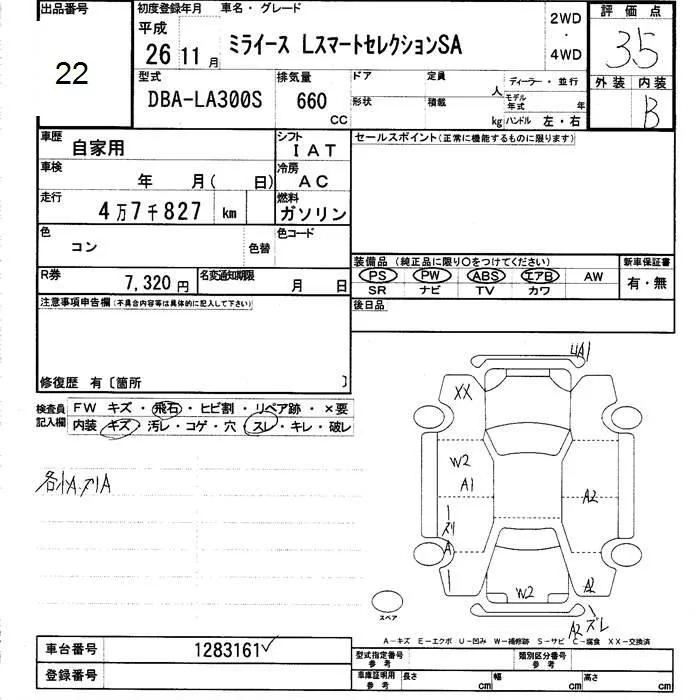 出品番号
22
初度登録年月 車名・グレード
平成
26 11月
ミライース LスマートセレクションSA
2WD
・
4WD
評価点
3.5
外装 内装
B
型式
DBA-LA300S
排気量
660
CC
ドア 定員 人 ディーラー・並行
形状 積載 kg モデル年式 年
ハンドル 左・右
車歴
自家用
シフト
IAT
セールスポイント(正常に機能するものに限ります)
車検
年 月( 日)
冷房
AC
走行
4万7千827 km
燃料
ガソリン
色
コン
色替
色コード
装備品(純正品に限り○をつけてください)
PS PW ABS エアB AW
SR ナビ TV カワ
新車保証書
有・無
R券
7,320円
名変通知期限
月 日
後日品
注意事項申告欄(不具合内容等は具体的に記入して下さい)
修復歴 有〔箇所 〕
検査員記入欄
FW キズ・飛石・ヒビ割・リペア跡・×要
内装 キズ・汚レ・コゲ・穴・スレ・キレ・破レ
各小A.スリA
UA1
XX
W2
A1
A2
スリ
A
W2
A2
A2 ズレ
スペア
A-キズ E-エクボ U-凹み W-補修跡 S-サビ C-腐食 XX-交換済
車台番号
1283161✓
登録番号
型式指定番号 参考
類別区分番号 参考
車庫証明用 参考
長さ cm
幅 cm
高さ cm